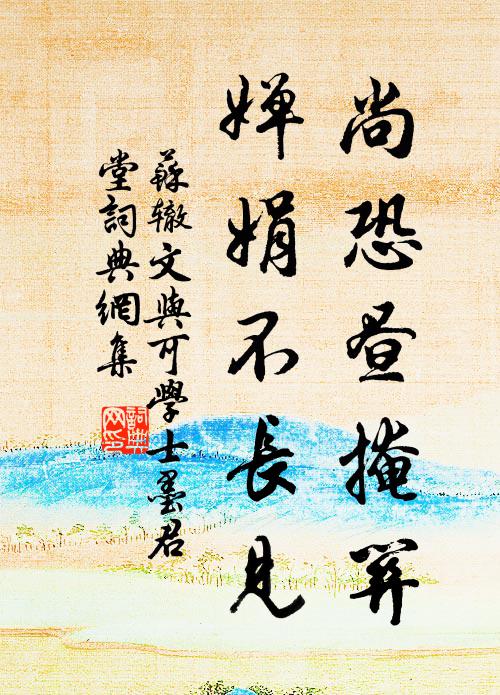 尚恐昼掩關
婵娟不長見
蘇辙文與可學士墨君
堂詞典網集
詞典
网印